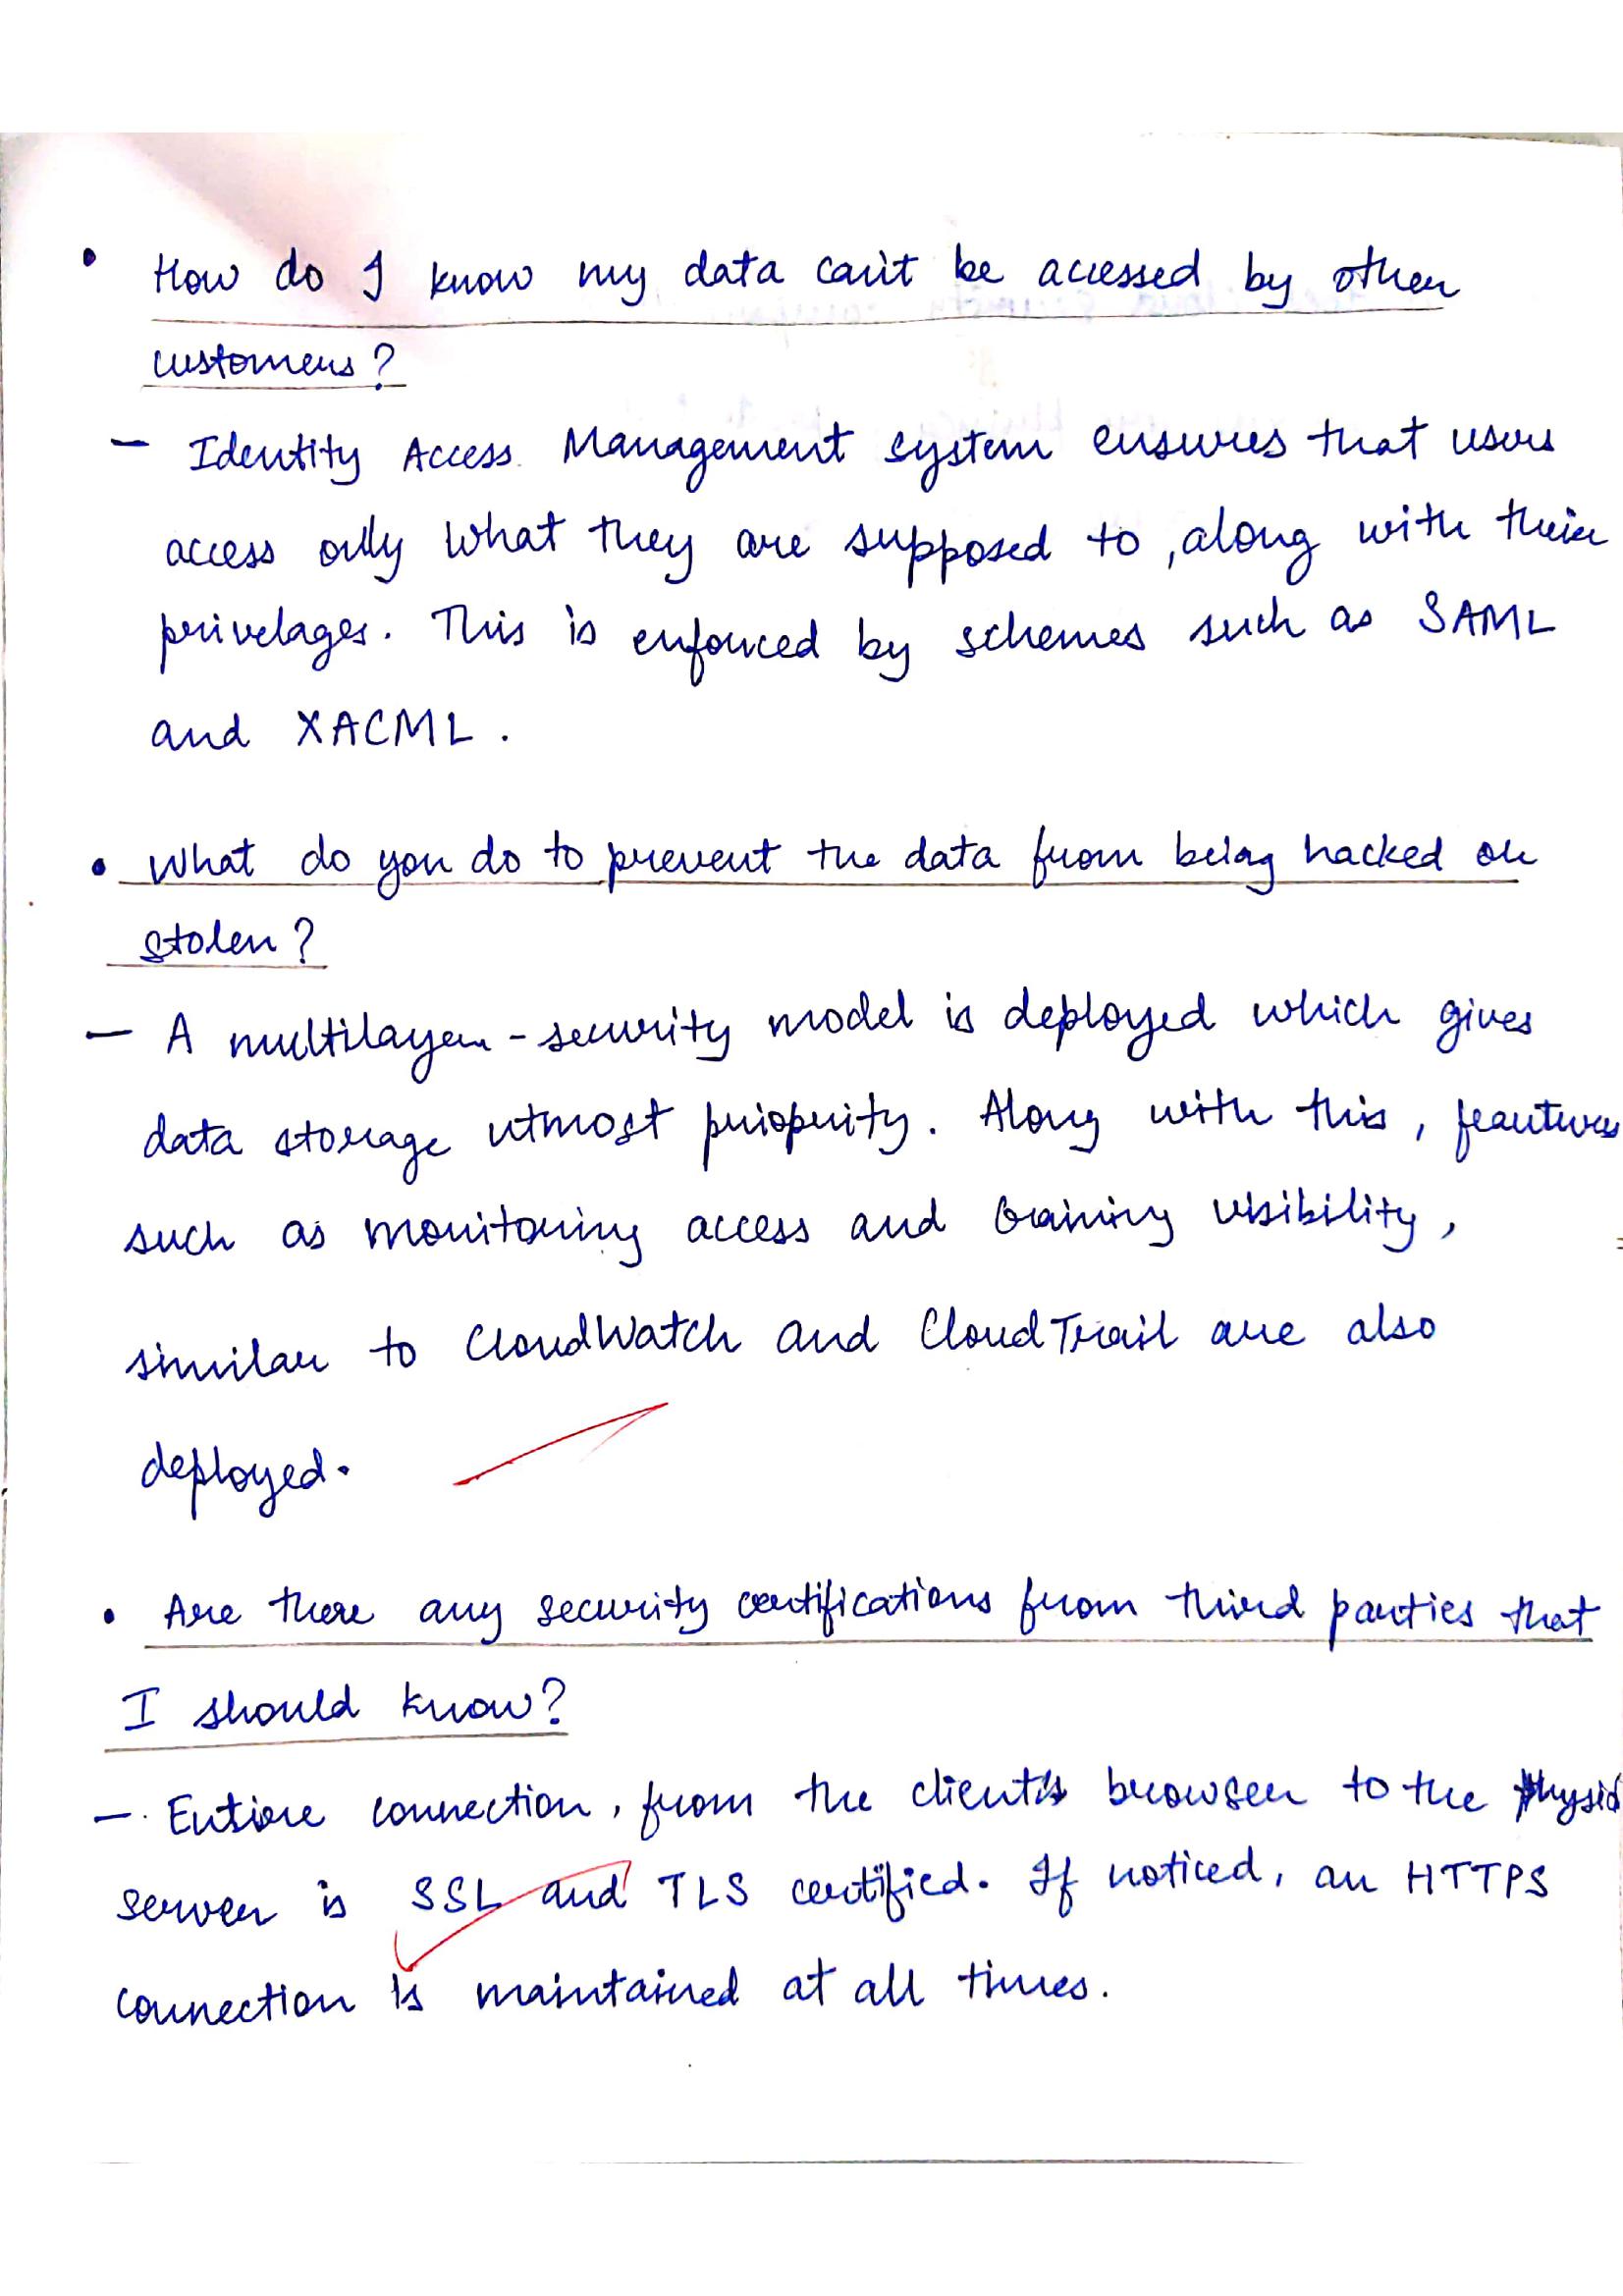 • How do I know my data can't be accessed by other
customers?
– Identity Access Management system ensures that users
access only what they are supposed to, along with their
privelages. This is enforced by schemes such as SAML
and XACML.
• What do you do to prevent the data from being hacked or
stolen?
– A multilayer-security model is deployed which gives
data storage utmost prioprity. Along with this, feautures
such as monitoring access and gaining visibility,
similar to CloudWatch and CloudTrail are also
deployed.
• Are there any security certifications from third parties that
I should know?
– Entire connection, from the client's browser to the
server is SSL and TLS certified. If noticed, an HTTPS
connection is maintained at all times.